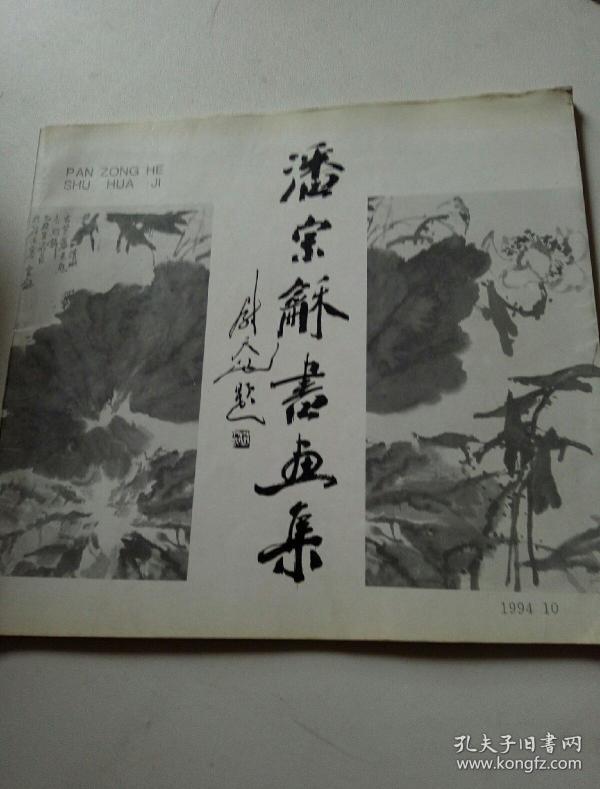 PAN ZONG HE
SHU HUA JI
潘宗龢書画集
題
1994 10
孔夫子旧书网
www.kongfz.com